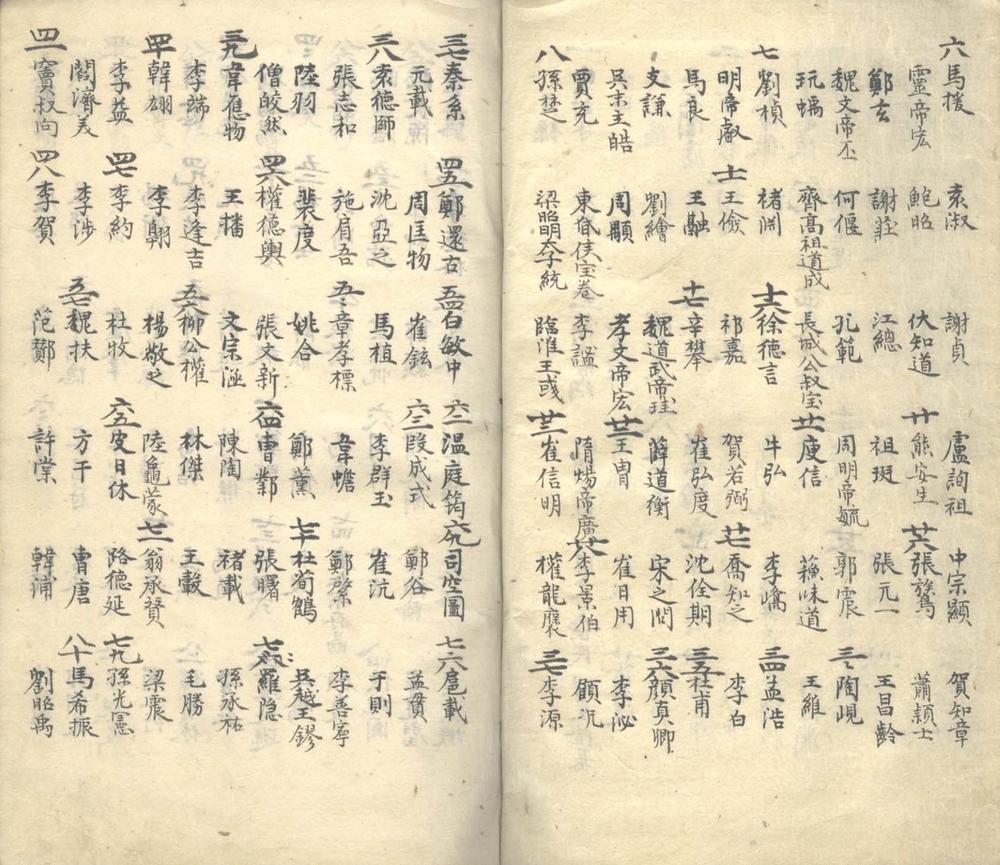 六馬援
靈帝宏
鄭玄
魏文帝丕
阮瑀
七劉楨
明帝叡
馬良
支謙
吳末主皓
賈充
八孫楚
袁淑
鮑昭
謝莊
何偃
齊髙祖道成
褚渊
十一王儉
王融
劉繪
周顒
東昏侯宝卷
梁昭明太子統
謝貞
伏知道
江總
孔範
長城公叔宝
十六徐德言
祁嘉
十七辛攀
魏道武帝珪
孝文帝宏
李謐
臨淮王彧
盧詢祖
廿熊安生
祖珽
周明帝毓
廿一庾信
牛弘
賀若弼
崔弘度
薛道衡
廿二王冑
隋煬帝廣
廿三崔信明
中宗顯
廿六張鷟
張元一
郭震
蘇味道
李嶠
廿七喬知之
沈佺期
宋之問
崔日用
廿八李景伯
權龍襃
賀知章
蕭穎士
王昌齡
三二陶峴
王維
三四孟浩
李白
三五杜甫
三六顏真卿
李泌
顧况
三七李源
三七秦系
元載
三八袁德師
張志和
陸羽
僧皎然
三九韋應物
李端
四十韓翃
李益
閻濟美
四一竇叔向
四五鄭還古
周匡物
沈亞之
施肩吾
裴度
四六權德輿
王播
李逢吉
李翱
四七李約
李涉
四八李賀
五四白敏中
崔鉉
馬植
五五章孝標
姚合
張文新
文宗涵
五六柳公權
楊敬之
杜牧
五七魏扶
范酇
六二溫庭筠
六三段成式
李群玉
韋蟾
鄭薰
六四曹鄴
陳陶
林傑
陸龜蒙
六五皮日休
方干
許棠
六九司空圖
鄭谷
崔沆
鄭綮
七十杜荀鶴
張曙
褚載
王轂
七二翁承贊
路德延
曹唐
韓浦
七六扈載
孟賓
于則
李善寧
吳越王鏐
七八羅隐
孫承祐
毛勝
梁震
七九孫光憲
八十馬希振
劉昭禹